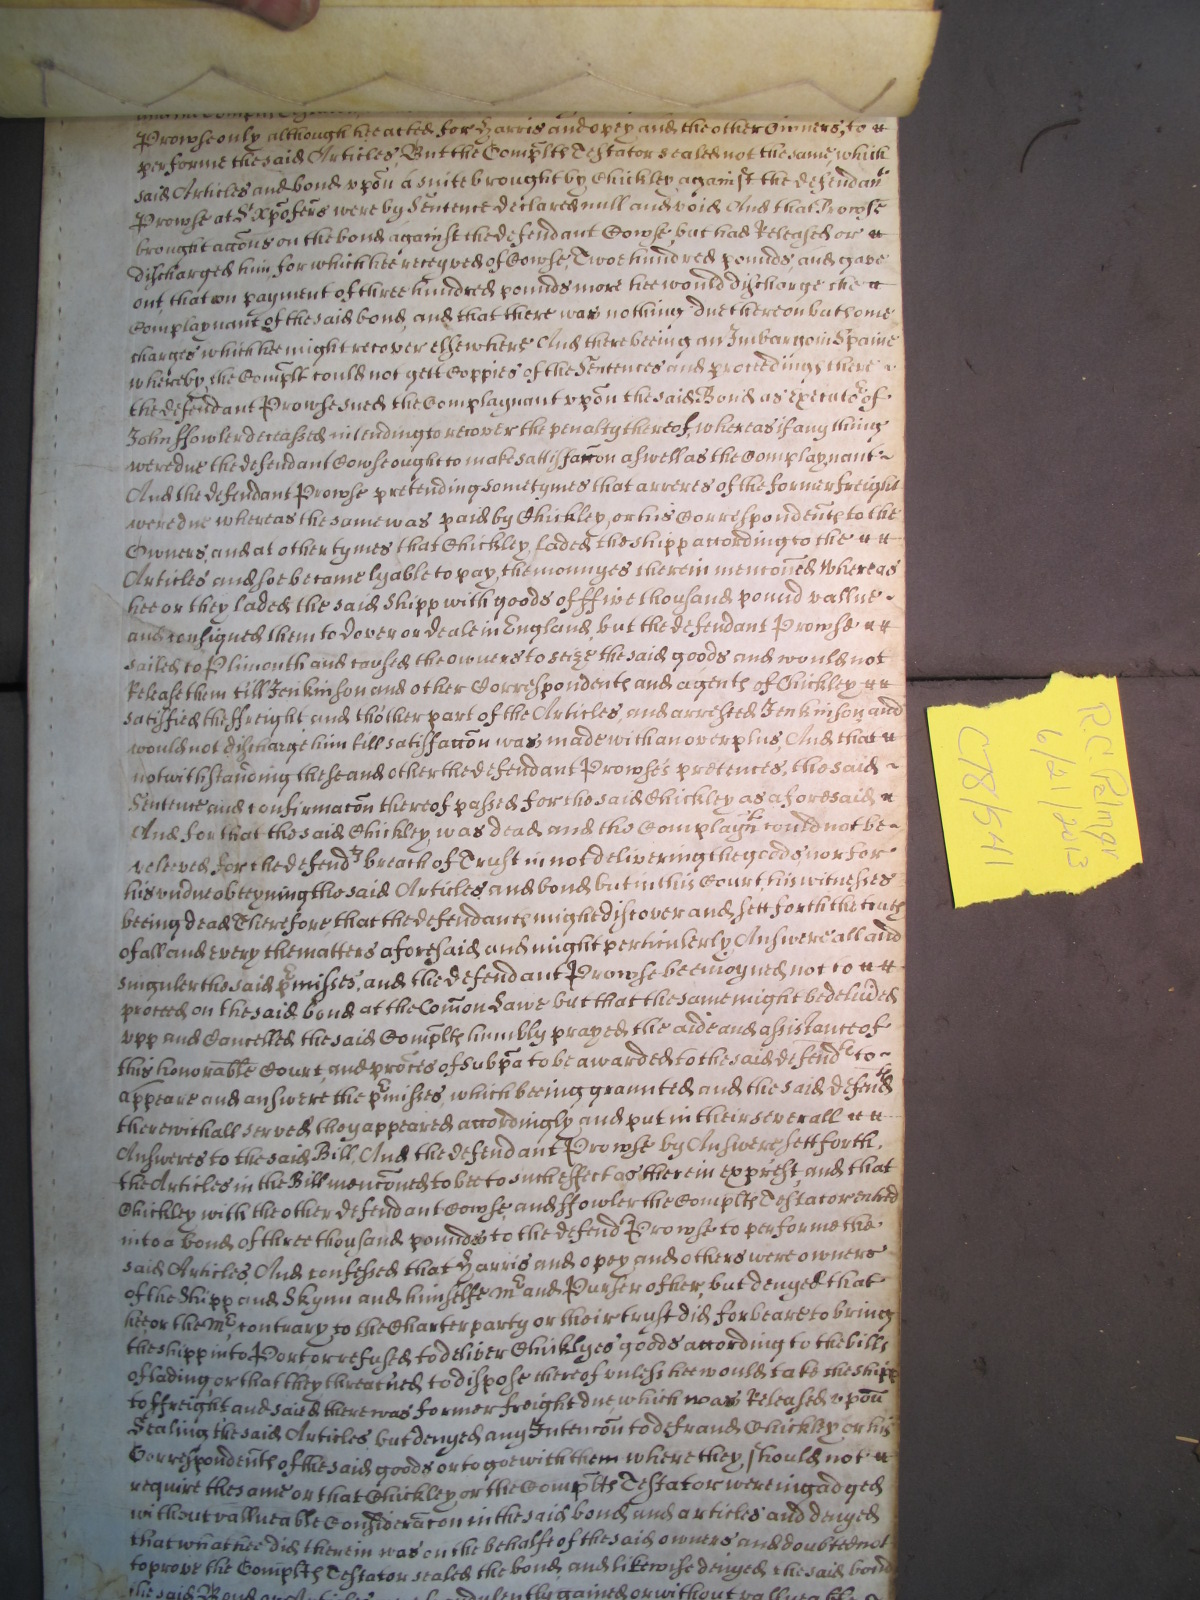 Prowse only although hee acted for Harris and opey and the other Owners, to
performe the said Articles, But the Complts Testator sealed not the same, which
said Articles and bond vpon a suite brought by Chickley against the defendant
Prowse at St Xpofers were by Sentence declared null and void And that Prowse
brought accons on the bond against the defendant Cowse, but had Released or
discharged him, for which hee receyved of Cowse, Twoe hundred pounds, and gave
out, that on payment of three hundred pounds more hee would discharge the
Complaynant of the said bond, and that there was nothing due thereon but some
charges which hee might recover elsewhere And there beeing an Imbargo in Spaine
whereby, the Complt could not gett Coppies of the Sentences and proceedings there
the defendant Prowse sued the Complaynant vpon the said Bond as executor of
John ffowler deceased intending to recover the penalty thereof, whereas if any thing
were due the defendant Cowse ought to make sattisfaccon aswell as the Complaynant
And the defendant Prowse pretending sometymes that arreres of the former freight
were due whereas the same was paid by Chickley, or his Correspondents to the
Owners, and at other tymes that Chickley, laded the shipp according to the
Articles and soe became lyable to pay, the monnyes therein menconed Whereas
hee or they laded the said Shipp with goods of ffive thousand pound vallue
and consigned them to Dover or Deale in England, but the defendant Prowse
sailed to Plimouth and caused the owners to seize the said goods and would not
Release them till Jenkinson and other Correspondents and agents of Chickley
satisfied the ffreight and th'other part of the Articles, and arrested Jenkinson and
would not discharge him till satisfaccon was made with an overplus, And that
notwithstanding these and other the defendant Prowse's pretences, the said
Sentence and confirmacon thereof passed for the said Chickley as aforesaid
And for that the said Chickley, was dead and the Complaynt could not be
releived for the defendts breach of Trust in not delivering the goods, nor for
his vndue obteyning the said Articles and bond but in this Court, his witnesses
beeing dead Therefore, that the defendants might discover and sett forth the truth
of all and every the matters aforesaid and might perticulerly Answere all and
singuler the said pmisses, and the defendant Prowse be enioyned not to
proceed on the said bond at the Comon Lawe but that the same might be deliuered
vpp and Cancelled the said Complts humbly prayed the aide and assistance of
this honorable Court, and proces of subpa to be awarded to the said defendts to
appeare and answere the pmisses, which beeing graunted and the said defendts
therewithall served they appeared accordingly, and put in their severall
Answeres to the said Bill, And the defendant Prowse by Answere sett forth,
the Articles in the Bill menconed to bee to such effect as therein exprest, and that
Chickley with the other defendant Cowse, and ffowler the Complts Testator entred
into a bond of three thousand pounds to the defendt Prowse to performe the
said Articles, And confessed that Harris and opey and others were owners
of the Shipp and Skynn and himselfe Mr and Purser of her, but denyed that
hee or the Mr, contrary to the Charterparty or their trust did forbeare to bring
the shipp into Port or refused to deliver Chicklyes goods according to the bills
of lading or that they threatned to dispose thereof vnless hee would take the shipp
to ffreight and said there was former freight due, which was Released vpon
Sealing the said Articles but denyed any Intencon to defraud Chickley or his
Correspondents of the said goods or to goe with them where they, should not
require the same or that Chickley, or the Complts Testator were ingadged
without vallueable Consideracon in the said bond and articles and denyed
that what hee did therein was on the behalfe of the said owners and doubted not
to prove the Complts Testator sealed the bond, and likewise denyed the said bond
the said Bond or Articles gained or without
R.C. Palmer
6/21/2013
C78/541